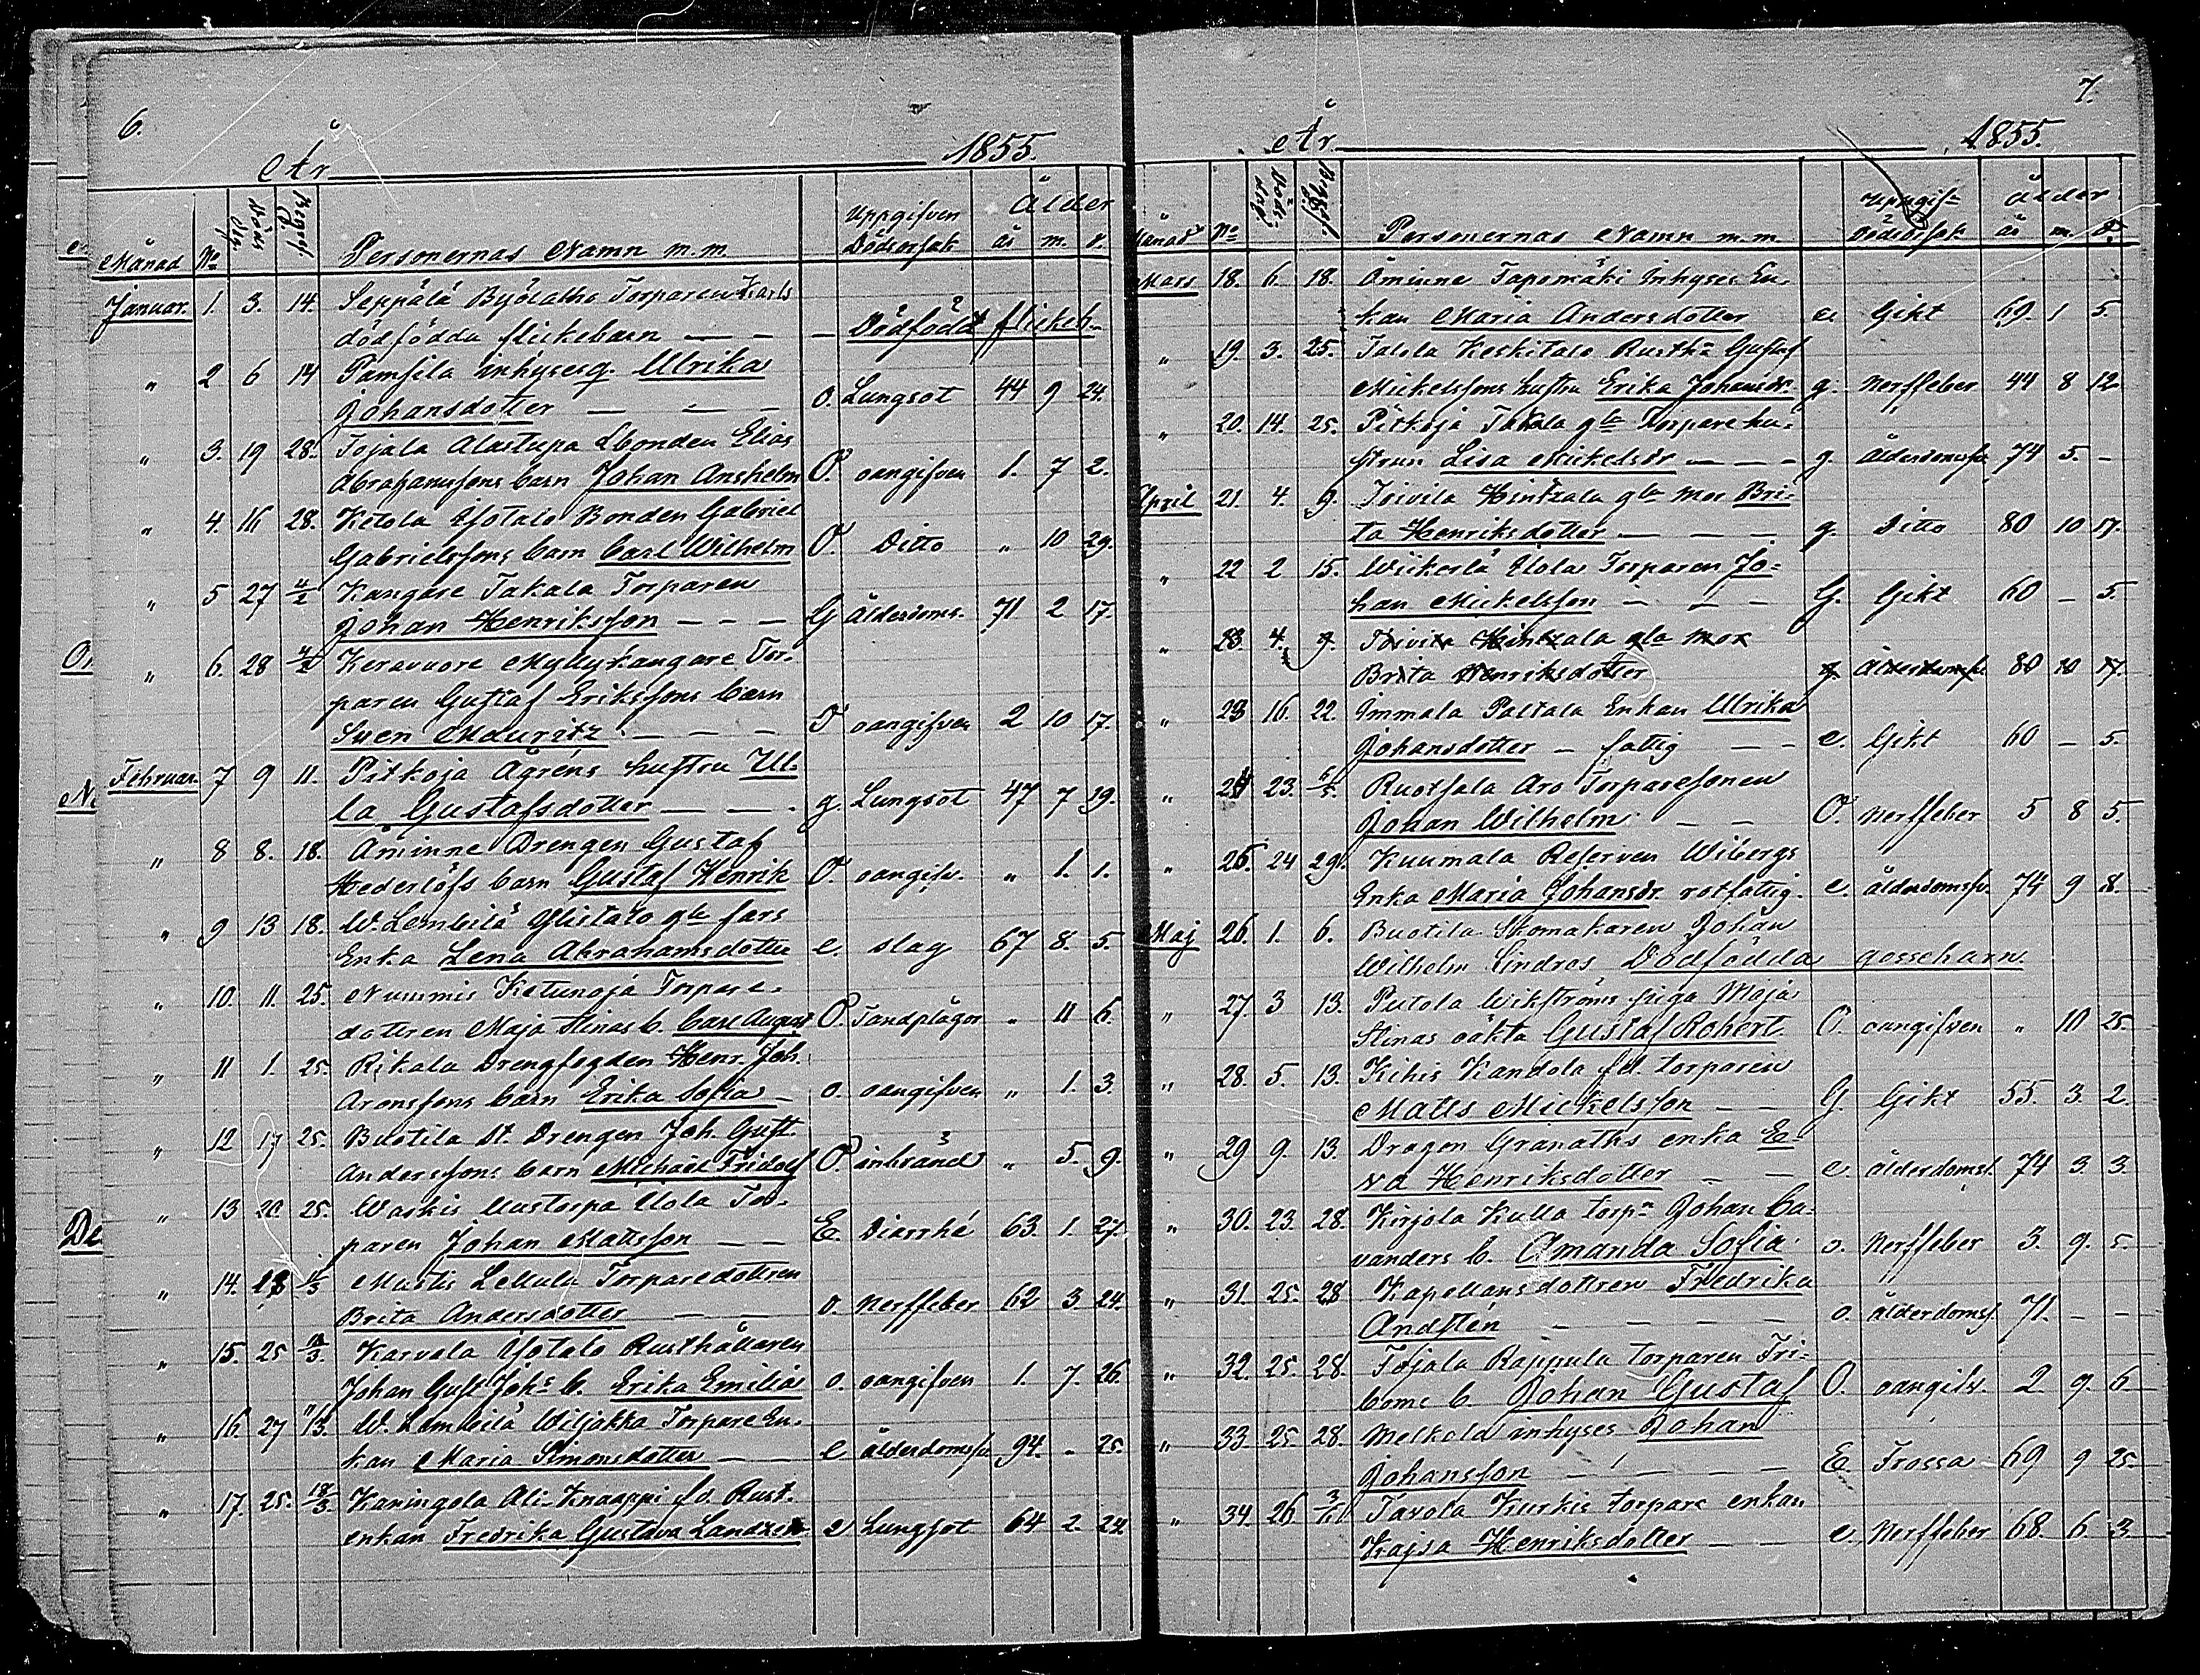 6.
År 1855.
Månad No Döds dag Begraf. d. Personernas Namn m.m. Uppgifven Dödsorsak Ålder år m. d.
Januar. 1. 3. 14. Seppälä Byölakko Torparen Karls
dödfödda flickebarn — — — Dödfödd flickeb.
" 2 6 14 Pamfila inhyses q. Ulrika
Johansdotter — — — o. Lungsot 44 9 24.
" 3. 19 28. Tojala Alastupa Lbonden Elias
Abrahamssons barn Johan Anshelm O. oangifven 1. 7 2.
" 4. 16 28. Ketola Yfotalo Bonden Gabriel
Gabrielssons barn Carl Wilhelm O. Ditto " 10 29.
" 5 27 4/2 Kangare Takala Torparen
Johan Henriksson — — — G Ålderdoms. 71 2 17.
" 6. 28 4/2 Keravuore Myllykangare Tor-
paren Gustaf Erikssons barn
Sven Mauritz — — — O oangifven 2 10 17.
Februar. 7 9 11. Pitkoja Ågréns hustru Ul-
la Gustafsdotter — — . g Lungsot 47 7 29.
" 8 8. 18. Åminne Drengen Gustaf
Hederlöfs barn Gustaf Henrik O. oangifv. " 1. 1.
" 9 13 18. W. Lemleilä Ylistalo gla fars
Enka Lena Abrahamsdotter e. slag 67 8. 5.
" 10. 11. 25. Nummis Ketunoja Torpare-
dottren Maja Stinas b. Carl August O. Tandplågor " 11 6.
" 11 1. 25. Rikala Drengfogden Henr. Joh.
Aronssons barn Erika Sofia — o. oangifven " 1. 3.
" 12 17 25. Buotila St. Drengen Joh. Gust.
Anderssons barn Michael Fridolf O. inbrand " 5. 9.
" 13 20. 25. Waskis Uustorpa Uola Tor-
paren Johan Mattsson — — E. Diarrhé 63. 1. 27.
" 14. 18 11/3 Märtis Lemula Torparedottren
Brita Andersdotter — — o. Nerffeber 62 3. 24.
" 15. 25 18/3. Karvala Yfotalo Rusthållaren
Johan Gust Johs b. Erika Emilia o. oangifven 1. 7. 26.
" 16. 27 11/3. W. Lemleilä Wiljakka Torpare En-
kan Maria Simonsdotter — — e ålderdomssv 94. " 25.
" 17. 25. 18/3. Kaningola Ali-Knaappi fd. Rust.
enkan Fredrika Gustava Landzen e Lungsot 64 2. 24.
7.
År 1855.
Månad No Döds- dag Begraf. d. Personernas Namn m.m. Uppgif- Dödsorsak Ålder år m. d.
Mars 18. 6. 18. Åminne Tapomäki Inhyses En-
kan Maria Andersdotter e. Gikt 69. 1 5.
" 19. 3. 25. Talola Keskitalo Rusth:s Gustaf
Mickelssons hustru Erika Johansdr. g. Nerffeber 44 8 12
" 20. 14. 25. Pitkoja Takala gla Torparehu-
strun Lisa Mickelsdr — — — g. ålderdomssv 74 5. -
April 21. 4. 9. Toivila Hintzala gla mor Bri-
ta Henriksdotter — — — g. Ditto 80 10 17.
" 22 2 15. Wiikerlä Uolas Torparen Jo-
han Mickelsson — — — G. Gikt 60 — 5.
" 23. 4. 9. Toivila Hintzala gla mor
Brita Henriksdotter g ålderdomssv. 80 10 17.
" 23 16. 22. Immala Paltala Enkan Ulrika
Johansdotter — fattig — — e. Gikt 60 — 5.
" 24 23. 6/5. Ruotsala Aro Torparesonen
Johan Wilhelm — — O. Nerffeber 5 8 5.
" 25. 24 29. Kuumala Reserven Wibergs
Enka Maria Johansdr. rotfattig. e. ålderdomssv. 74 9 8.
Maj 26. 1. 6. Buotila Skomakaren Johan
Wilhelm Lindros Dödfödda gossebarn
" 27. 3 13. Putola Wikströms piga Maja
Stinas oäkta Gustaf Robert O. oangifven " 10 25.
" 28. 5. 13. Kihis Kandola fd. torparen
Matts Mickelsson — — G. Gikt 55. 3. 2.
" 29 9. 13. Dragon Granaths enka E-
va Henriksdotter — — e. ålderdoms. 74 3. 3.
" 30. 23. 28. Kirjola Kulla torp:n Johan Ca-
vanders b. Amanda Sofia o. Nerffeber 3. 9. 5.
" 31. 25. 28 Kapellans dottren Fredrika
Andstén — — — — o. ålderdomss. 71. — —
" 32. 25. 28. Tojala Rappula torparen Fri-
boms b. Johan Gustaf O. oangifv. 2. 9. 6
" 33 25. 28. Melkola inhyses Johan
Johansson — — — — E. Frossa 69 9 25.
" 34. 26. 3/6 Tavola Kurkis torpare enkan
Kajsa Henriksdotter — — e. Nerffeber 68. 6. 3.